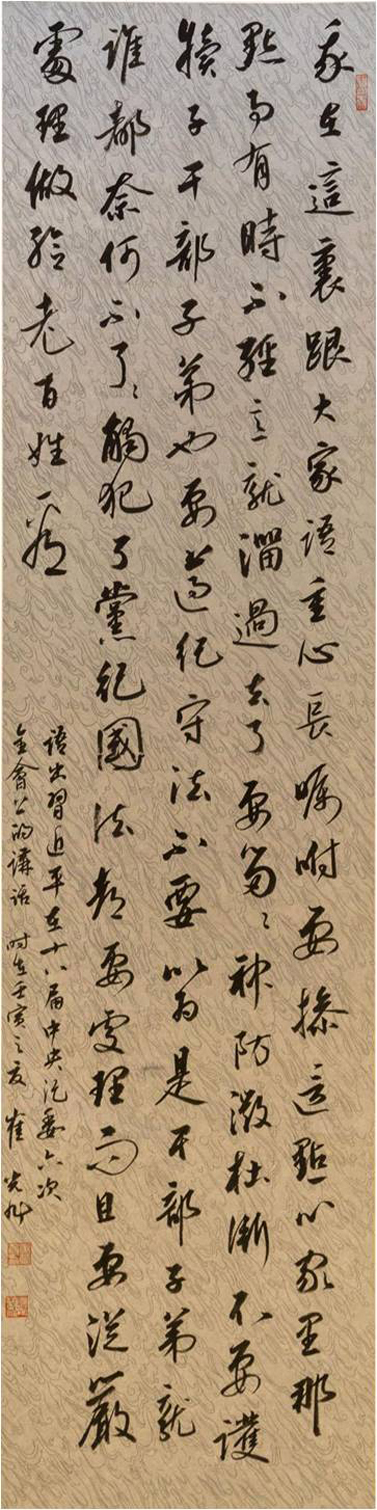 我在這裏跟大家語重心長囑咐要操這點心家里那
點事有時不經意就溜過去了要留々神防微杜漸不要護
犢子干部子弟也要遵纪守法不要以為是干部子弟就
誰都奈何不了々觸犯了黨紀國法都要處理而且要從嚴
處理做給老百姓看
語出習近平在十八届中央纪委六次
全會上的講話 時在壬寅之夏 崔光